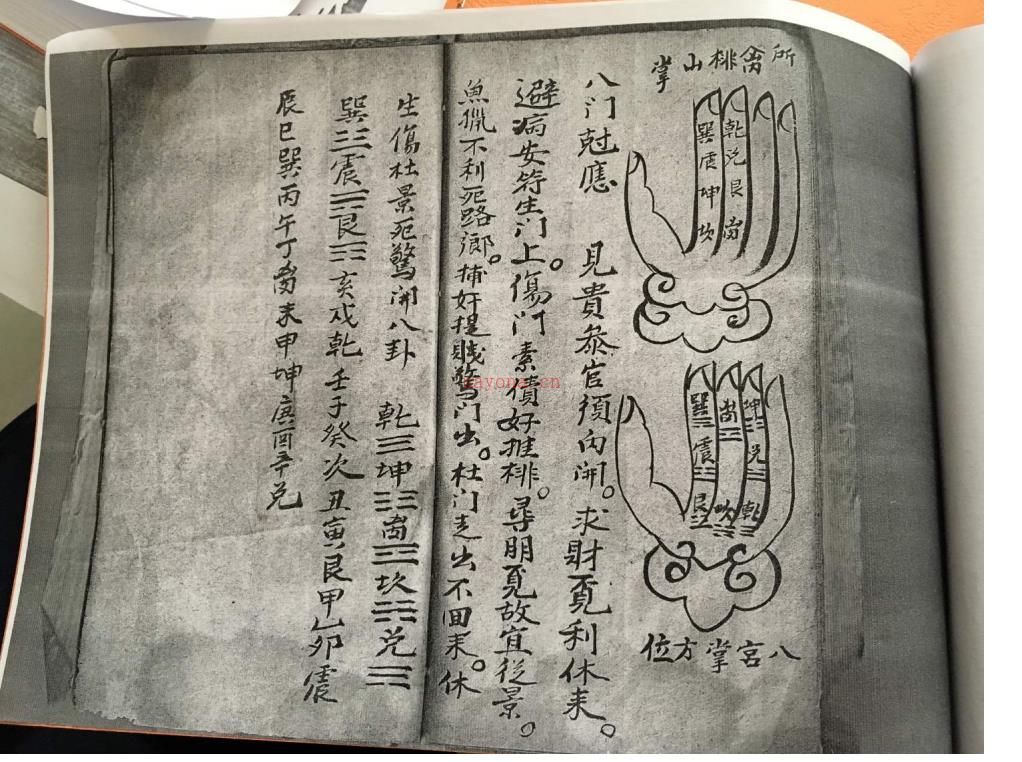 所离排山掌
巽震坤坎
乾兑艮离
巽☴震☳艮☶
离☲坎☵
坤☷兑☱乾☰
八宮掌方位
八门尅應 見貴叅官須向開。求財覓利休来。
避病安符生门上。傷门索債好推排。尋朋覓故宜從景。
魚獵不利死路鄉。捕奸捉賊驚门出。杜门走出不回来。休
生傷杜景死驚開八卦 乾☰坤☷离☲坎☵兑☱
巽☴震☳艮☶亥戌乾壬子癸坎丑寅艮甲乙卯震
辰巳巽丙午丁离未申坤庚酉辛兑
nayona.cn